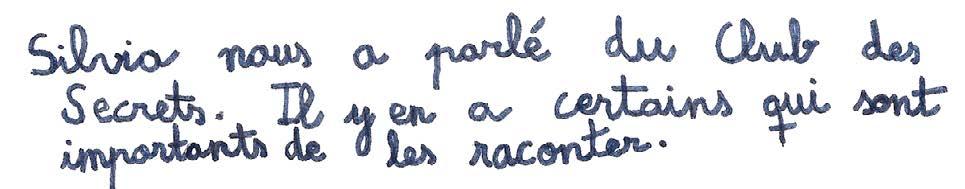 Silvia nous a parlé du Club des
Secrets. Il y en a certains qui sont
importants de les raconter.